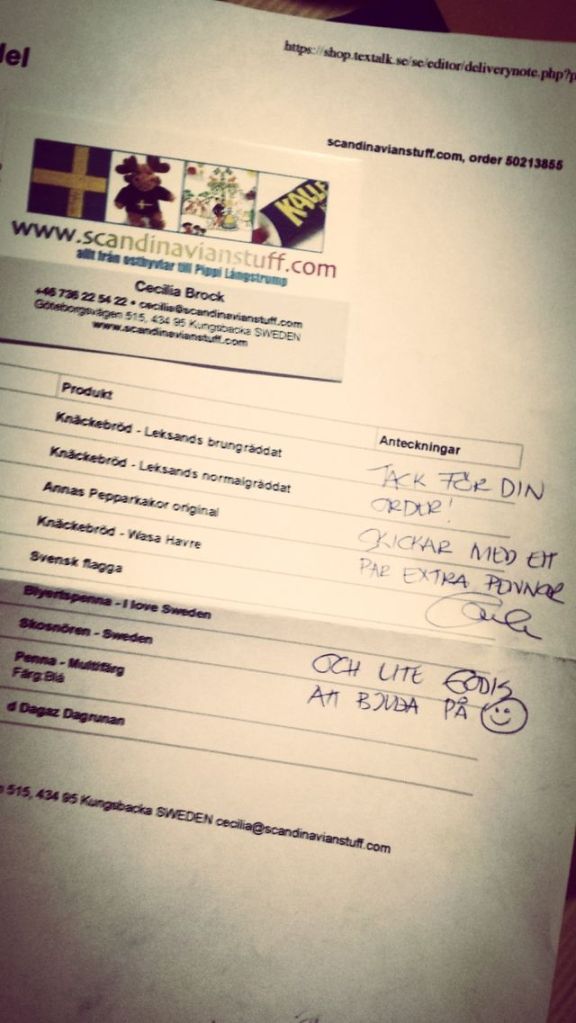 del
https://shop.textalk.se/se/editor/deliverynote.php?p
scandinavianstuff.com, order 50213855
KALLE
www.scandinavianstuff.com
allt från osthyvlar till Pippi Långstrump
Cecilia Brock
+46 736 22 54 22 • cecilia@scandinavianstuff.com
Göteborgsvägen 515, 434 95 Kungsbacka SWEDEN
www.scandinavianstuff.com
Produkt
Anteckningar
Knäckebröd - Leksands brungräddat
Knäckebröd - Leksands normalgräddat
Annas Pepparkakor original
Knäckebröd - Wasa Havre
Svensk flagga
Blyertspenna - I love Sweden
Skosnören - Sweden
Penna - Multifärg
Färg:Blå
d Dagaz Dagrunan
TACK FÖR DIN
ORDER!
SKICKAR MED ETT
PAR EXTRA PENNOR
OCH LITE GODIS
ATT BJUDA PÅ
515, 434 95 Kungsbacka SWEDEN cecilia@scandinavianstuff.com